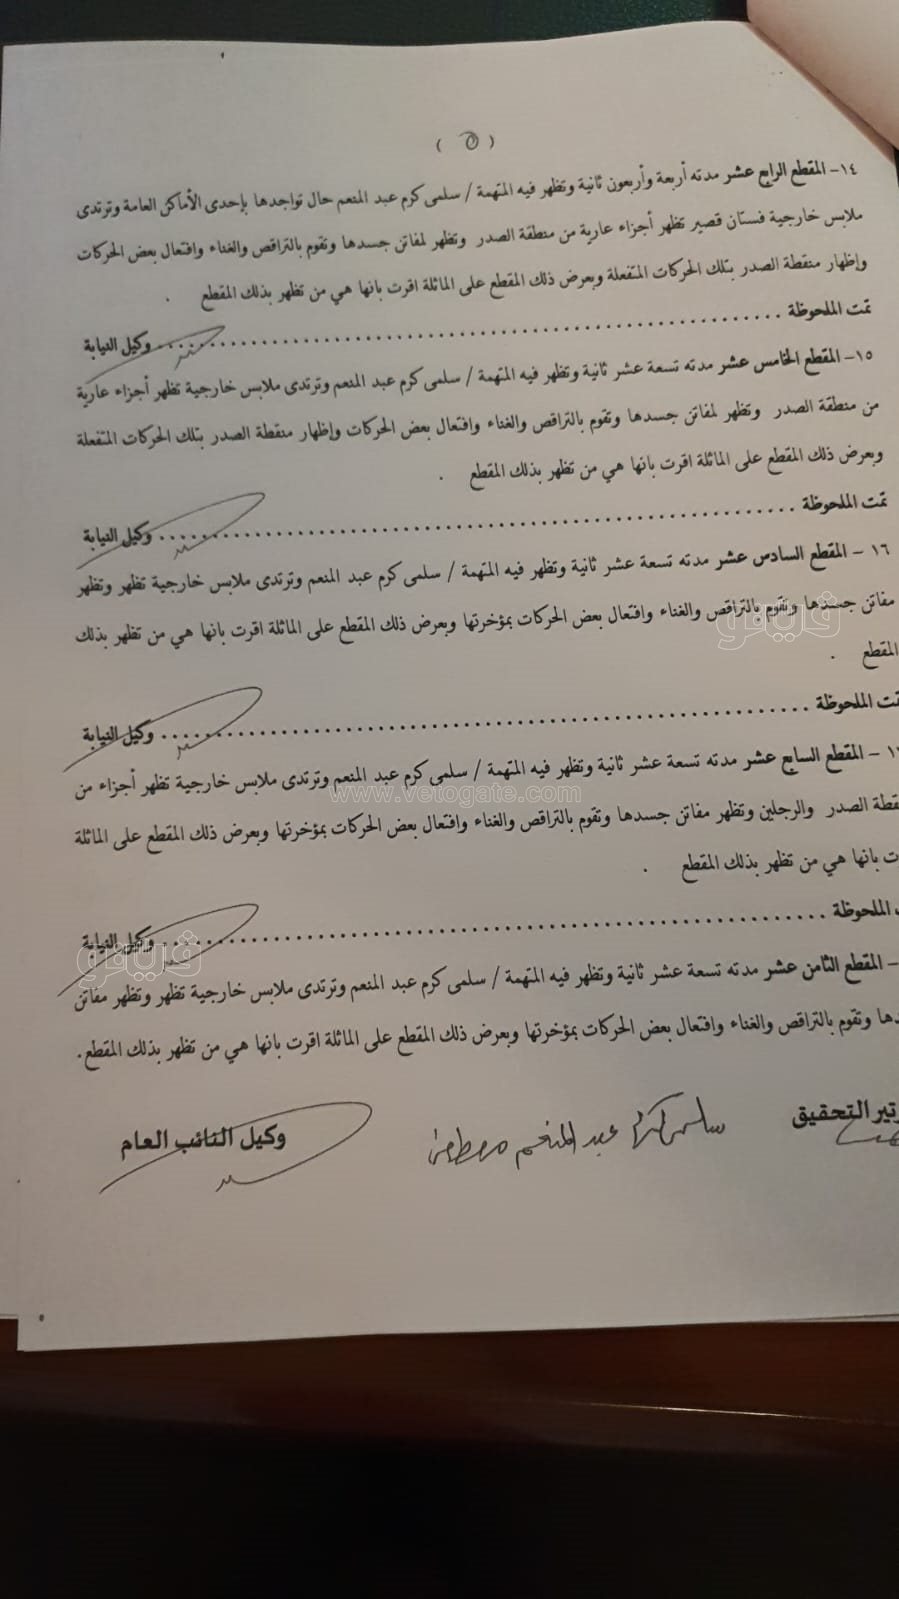 ( ٥ )
١٤- المقطع الرابع عشر مدته أربعة وأربعون ثانية وتظهر فيه المتهمة / سلمى كرم عبد المنعم حال تواجدها بإحدى الأماكن العامة وترتدى
ملابس خارجية فستان قصير تظهر أجزاء عارية من منطقة الصدر وتظهر لمفاتن جسدها وتقوم بالتراقص والغناء وافتعال بعض الحركات
وإظهار منقطة الصدر بتلك الحركات المتفعلة وبعرض ذلك المقطع على الماثلة اقرت بانها هي من تظهر بذلك المقطع .
تمت الملحوظة ........................................ وكيل النيابة
١٥- المقطع الخامس عشر مدته تسعة عشر ثانية وتظهر فيه المتهمة / سلمى كرم عبد المنعم وترتدى ملابس خارجية تظهر أجزاء عارية
من منطقة الصدر وتظهر لمفاتن جسدها وتقوم بالتراقص والغناء وافتعال بعض الحركات وإظهار منقطة الصدر بتلك الحركات المتفعلة
وبعرض ذلك المقطع على الماثلة اقرت بانها هي من تظهر بذلك المقطع .
تمت الملحوظة ........................................ وكيل النيابة
١٦ - المقطع السادس عشر مدته تسعة عشر ثانية وتظهر فيه المتهمة / سلمى كرم عبد المنعم وترتدى ملابس خارجية تظهر وتظهر
مفاتن جسدها وتقوم بالتراقص والغناء وافتعال بعض الحركات بمؤخرتها وبعرض ذلك المقطع على الماثلة اقرت بانها هي من تظهر بذلك
المقطع .
تمت الملحوظة ........................................ وكيل النيابة
- المقطع السابع عشر مدته تسعة عشر ثانية وتظهر فيه المتهمة / سلمى كرم عبد المنعم وترتدى ملابس خارجية تظهر أجزاء من
قطة الصدر والرجلين وتظهر مفاتن جسدها وتقوم بالتراقص والغناء وافتعال بعض الحركات بمؤخرتها وبعرض ذلك المقطع على الماثلة
ت بانها هي من تظهر بذلك المقطع .
الملحوظة ........................................ وكيل النيابة
- المقطع الثامن عشر مدته تسعة عشر ثانية وتظهر فيه المتهمة / سلمى كرم عبد المنعم وترتدى ملابس خارجية تظهر وتظهر مفاتن
دها وتقوم بالتراقص والغناء وافتعال بعض الحركات بمؤخرتها وبعرض ذلك المقطع على الماثلة اقرت بانها هي من تظهر بذلك المقطع.
تير التحقيق
سلمى كرم عبد المنعم مصطفى
وكيل النائب العام
ڤيتو
www.vetogate.com
ڤيتو